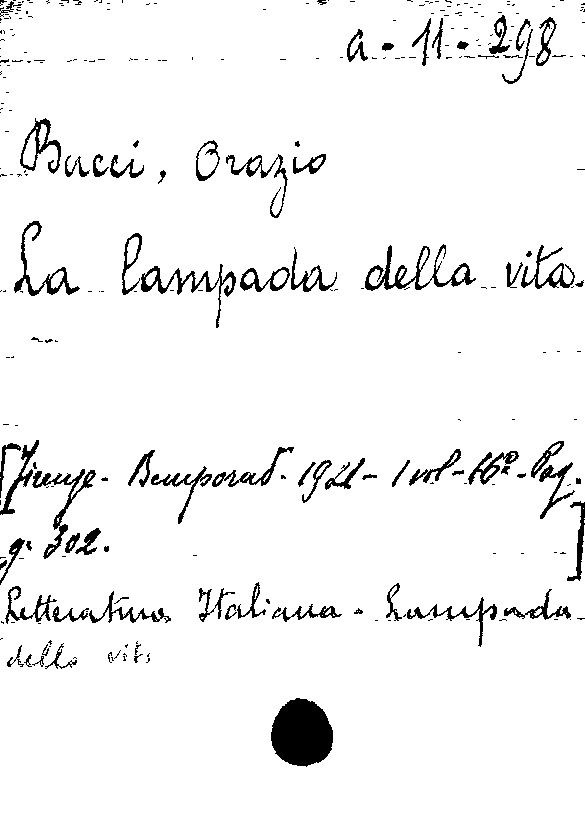 a - 11 - 298
Bucci, Orazio
La lampada della vita.
[Firenze - Bemporad - 1921 - 1 vol - 16º - Pag.
g. 302.]
Letteratura Italiana - Lampada
della vita